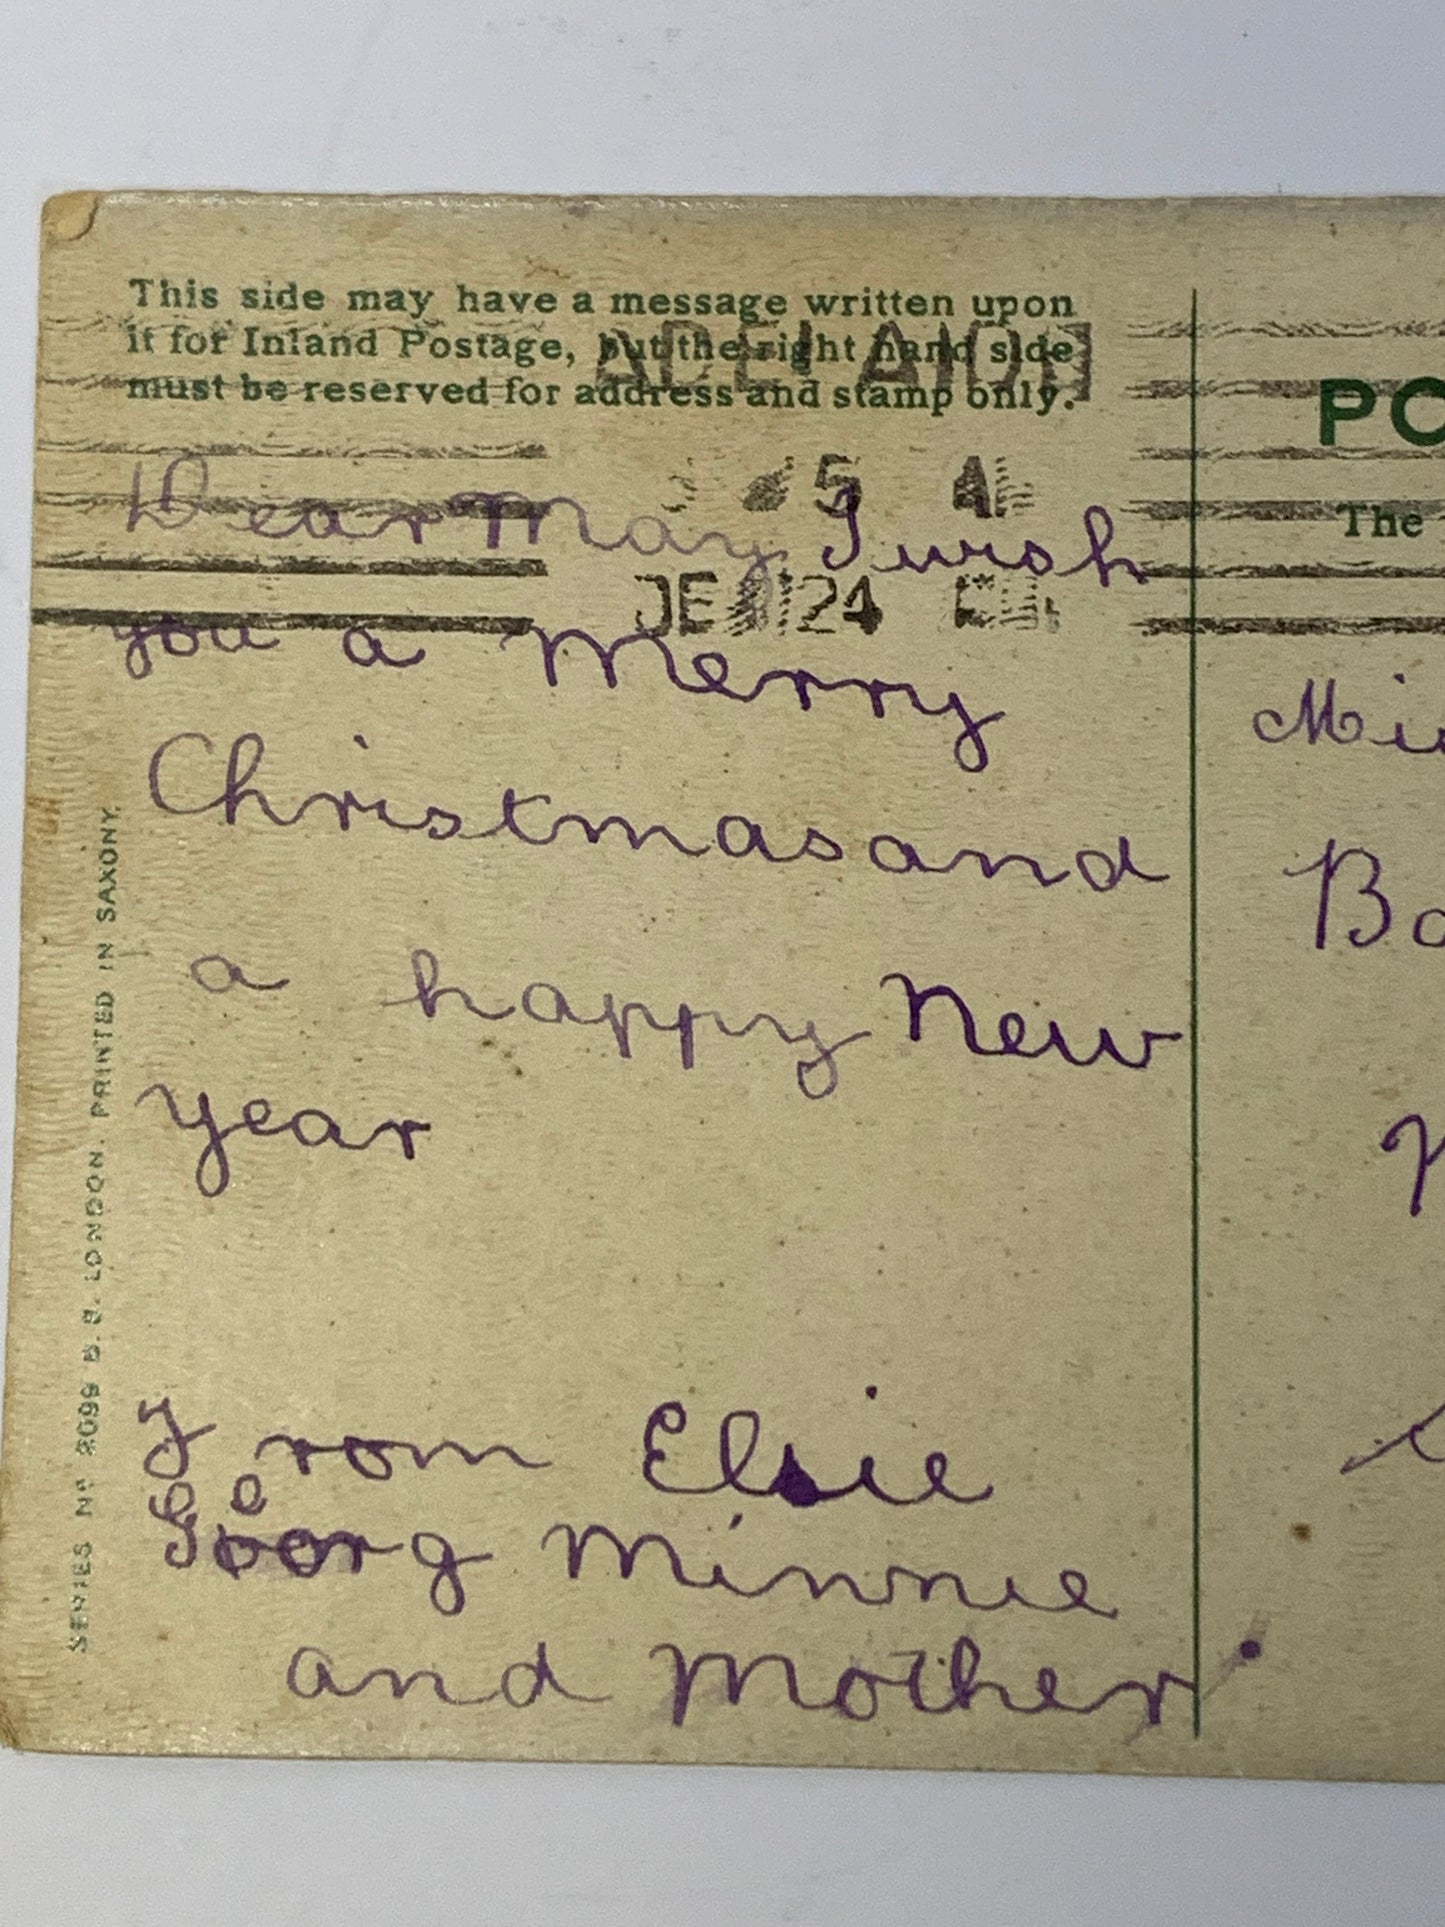 This side may have a message written upon
it for Inland Postage, but the right hand side
must be reserved for address and stamp only.
ADELAID
5 A
24
Dear May I wish
you a Merry
Christmas and
a happy New
year
From Elsie
Georg Minnie
and Mother
SERIES No 2099 B. B. LONDON. PRINTED IN SAXONY.
PO
The
Mi
Ba